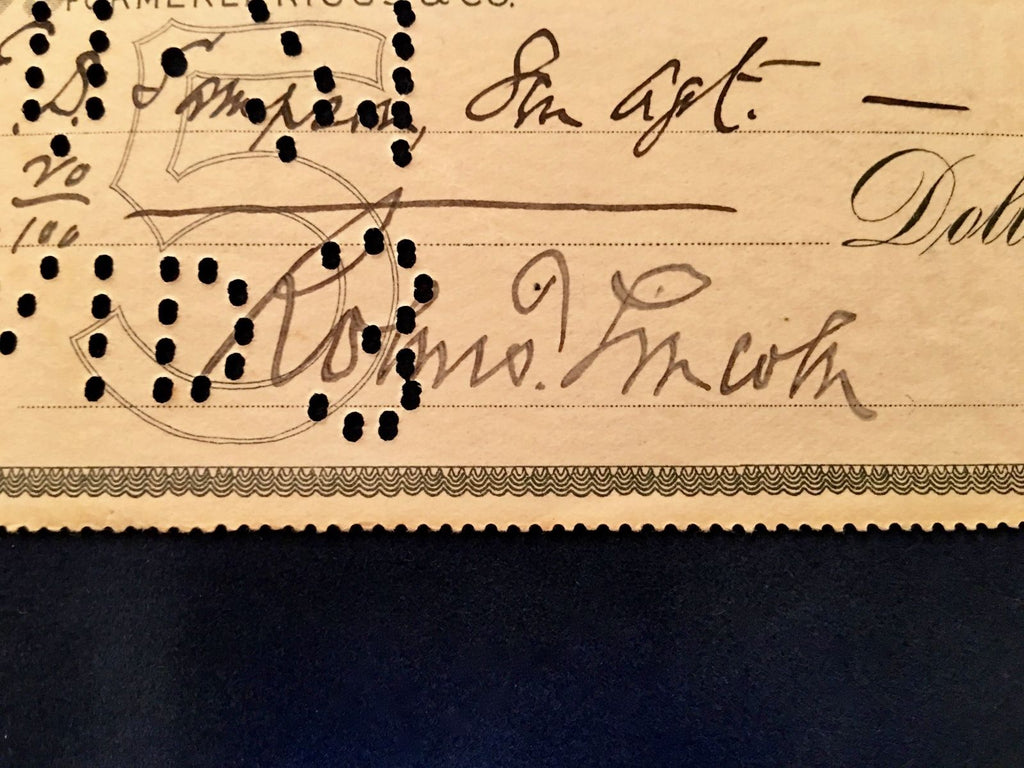 FORMERLY RIGGS & CO.
S. Tompson, Gen Agt. —
20/100 Doll
Robt. T. Lincoln
5